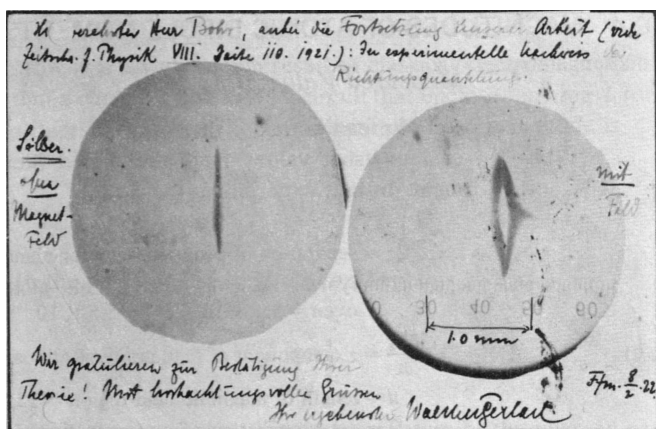 verehrter Herr Bohr, anbei die Fortsetzung unserer Arbeit (vide
Zeitschr. f. Physik VIII. Seite 110. 1921.): Der experimentelle Nachweis
Richtungsquantelung.
Silber
ohne
Magnet-
feld
mit
Feld
30 40 50 60
1.0 mm
Wir gratulieren zur Bestätigung Ihrer
Theorie! Mit hochachtungsvollen Grüssen
Ihr ergebenster Walther Gerlach
Ffm. 8/2. 22.